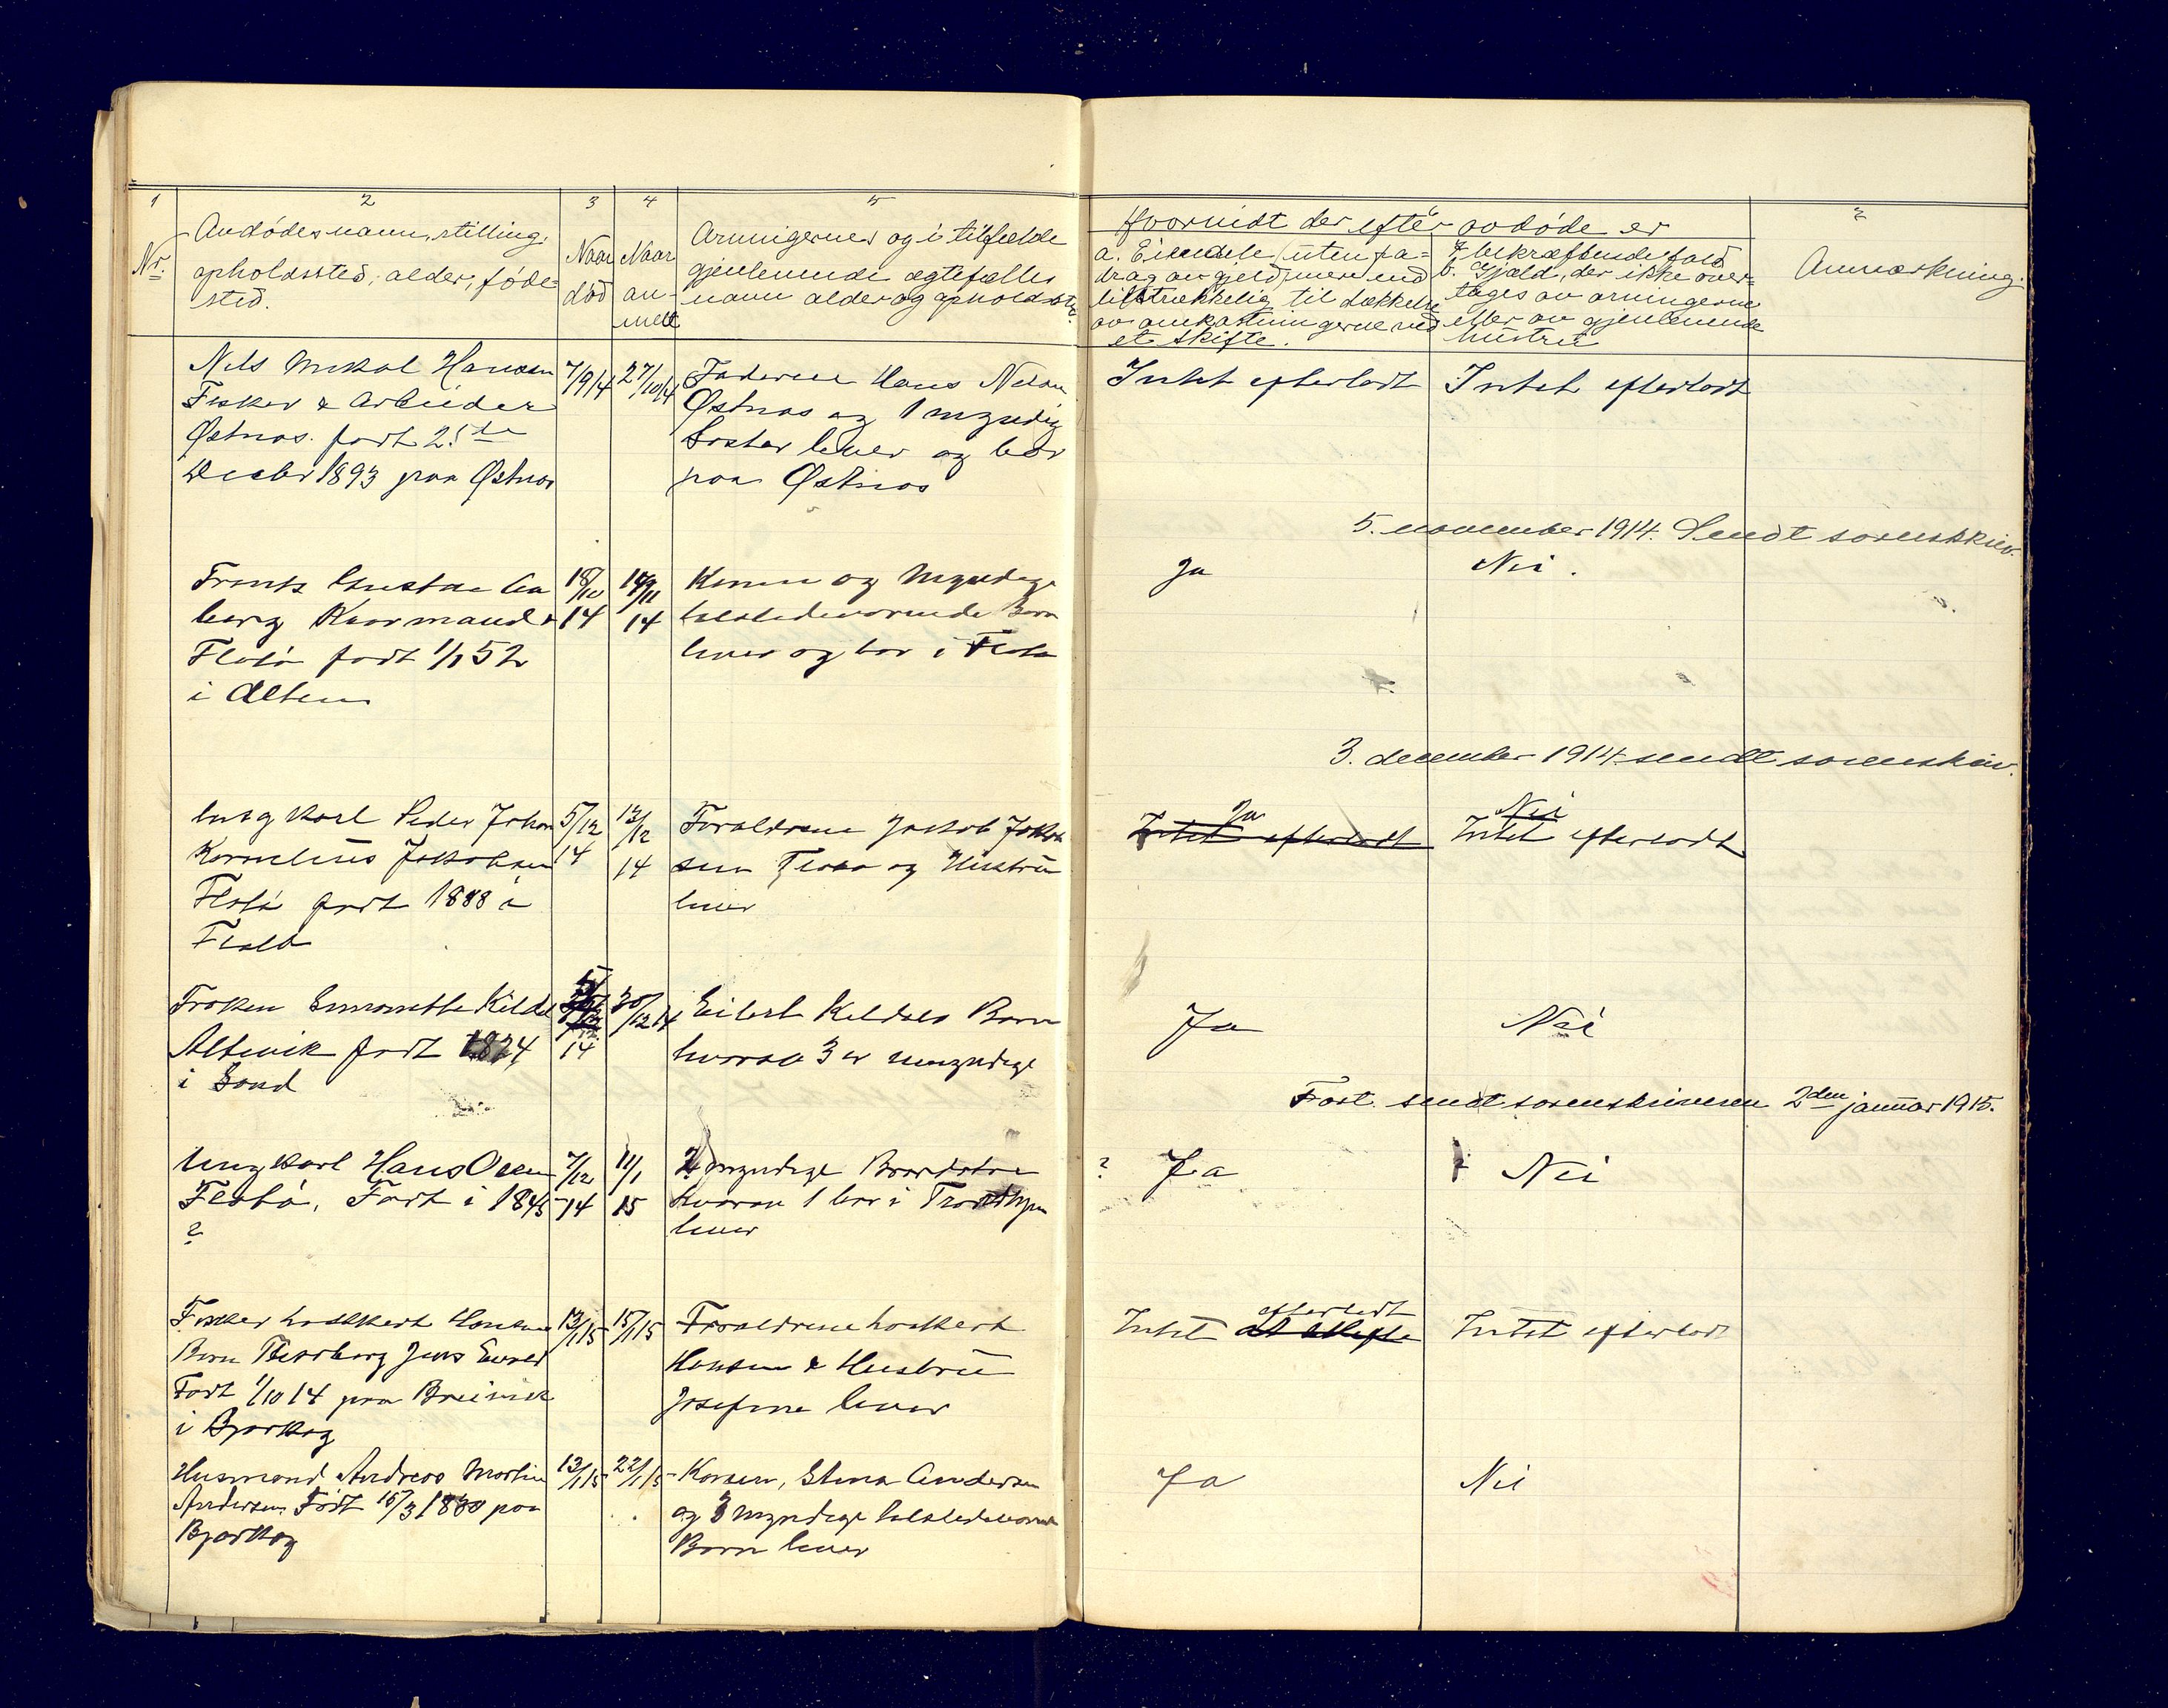 1
2
3
4
5
6
7
Nr.
Avdødes navn, stilling,
opholdssted, alder, føde-
sted.
Naar
død
Naar
an-
meldt
Arvingernes og i tilfælde
gjenlevende ægtefælles
navn alder og opholdsste
Hvorvidt der efter avdøde er
a. Eiendele (uten fa-
drag av gjeld) mere end
tilstrækkelig til dækkelse
av omkostningerne ved
et skifte.
I bekræftende fald
b. Gjæld, der ikke over-
tages av arvingerne
eller av gjenlevende
hustru
Anmærkning.
Nils Mikal Hansen
Fisker & Arbeider
Østnæs. født 25te
Decbr 1893 paa Østnæs
7/9 14
27/10 14
Faderen Hans Nilsen
Østnæs og 1 myndig
Søster lever og bor
paa Østnæs
Intet efterladt
Intet efterladt
5. november 1914. Sendt sorenskriv.
Frants Gustav Aa
berg Kaarmand
Flotø født 1/1 52
i Alten
18/10
14
/11
14
Konen og Myndige
tilstedeværende Børn
lever og bor i Flotø
Ja
Nei.
3. december 1914. sendt sorenskriv.
Ungkarl Peder Johan
Kornelius Jakobsen
Flotø født 1888 i
Flotø
5/12
14
13/12
14
Forældrene Jakob Jakob
sen Flotø og Hustru
lever
Ja
Intet efterladt
Nei
Intet efterladt
Frøken Simonette Kilda
Altevik født 1824
i Sand
14
30/12 14
Eilert Kildals Børn
hvorav 3 er umyndige
Ja
Nei
Fort. sendt sorenskriveren 2den januar 1915.
Ungkarl Hans Olsen
Flotø, Født i 1845
?
7/12
14
11/1
15
2 myndige Brødre
hvorav 1 bor i Trondhjem
lever
? Ja
Nei
Fisker Lockert Hansens
Barn Thorborg Jens Evald
Født 1/10 14 paa Breivik
i Bjarkøy
13/1 15
15/1 15
Forældrene Lockert
Hansen & Hustru
Josefine lever
efterladt
Intet
Intet efterladt
Husmand Andreas Martin
Andersen Født 15/3 1830 paa
Bjarkøy
13/1 15
22/1 15
Konen, Stina Andersen
og 3 myndige tilstedeværende
Børn lever
Ja
Nei